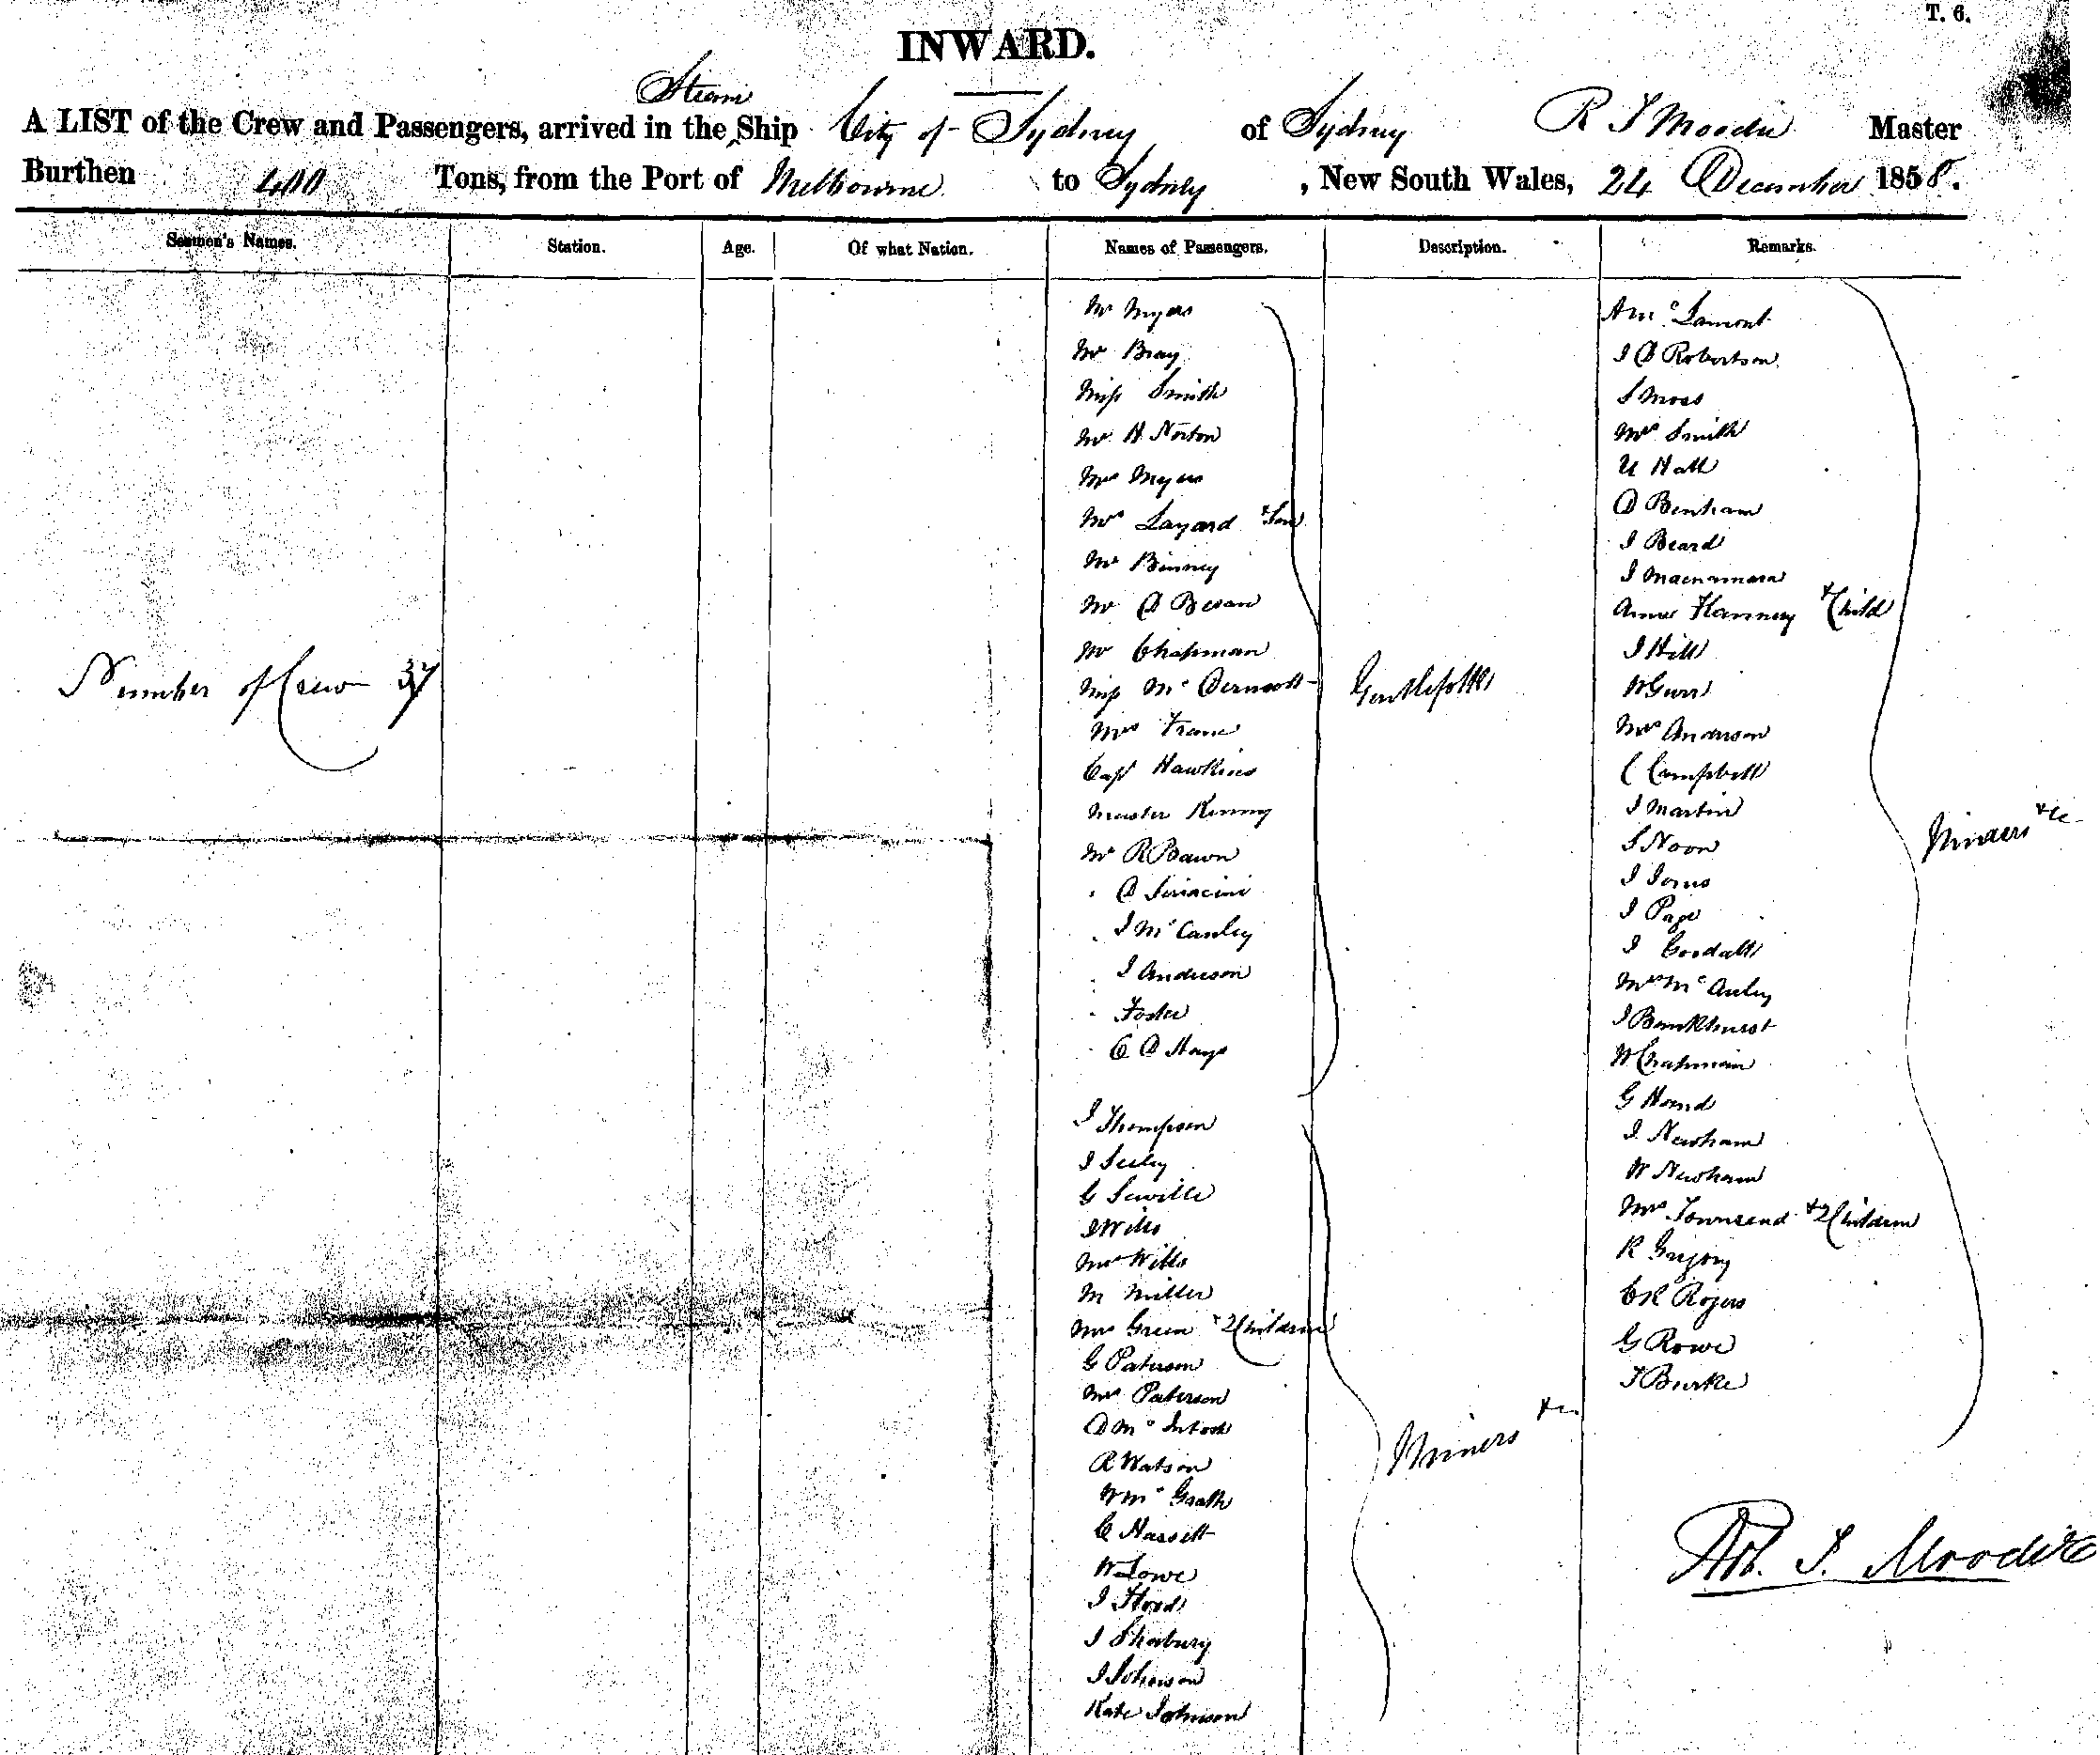 T. 6.
INWARD.
Steam
A LIST of the Crew and Passengers, arrived in the Ship City of Sydney of Sydney R T Moodie Master
Burthen 400 Tons, from the Port of Melbourne to Sydney, New South Wales, 24 December 1858.
Seamen's Names. Station. Age. Of what Nation. Names of Passengers. Description. Remarks.
Number of Crew 37
Mr Myers
Mr Bray
Miss Smith
Mr H Norton
Mrs Myers
Mrs Layard & Son
Mr Binney
Mr D Bevan
Mr Chapman
Miss McDermott
Mrs Franc
Capt Hawkins
Master Kenny
Mr R Bawn
D
J McCauley
J Anderson
Foster
C D Hays
Gentlefolks
J Thompson
J Seeley
G Saville
J Wills
Mrs Wills
M Miller
Mrs Green & 2 Children
G Paterson
Mrs Paterson
D McIntosh
R Watson
W McGrath
C Hassett
W Lowe
J Flood
J Shorbury
J Johnson
Kate Johnson
Miners &c
A McLamont
J D Robertson
S Moss
Mrs Smith
U Hall
D Benham
J Beard
J Macnamara
Anne Flannery & Child
J Hill
W Gurr
Mrs Anderson
C Campbell
J Martin
S Noon
J
J Page
J Goodall
Mrs McAuley
J Bankhurst
W Chapman
G Hornd
J Newham
W Newham
Mrs Townsend & 2 Children
R Gregory
C R Rogers
G Rowe
T Burke
Miners &c
Rob. T. Moodie